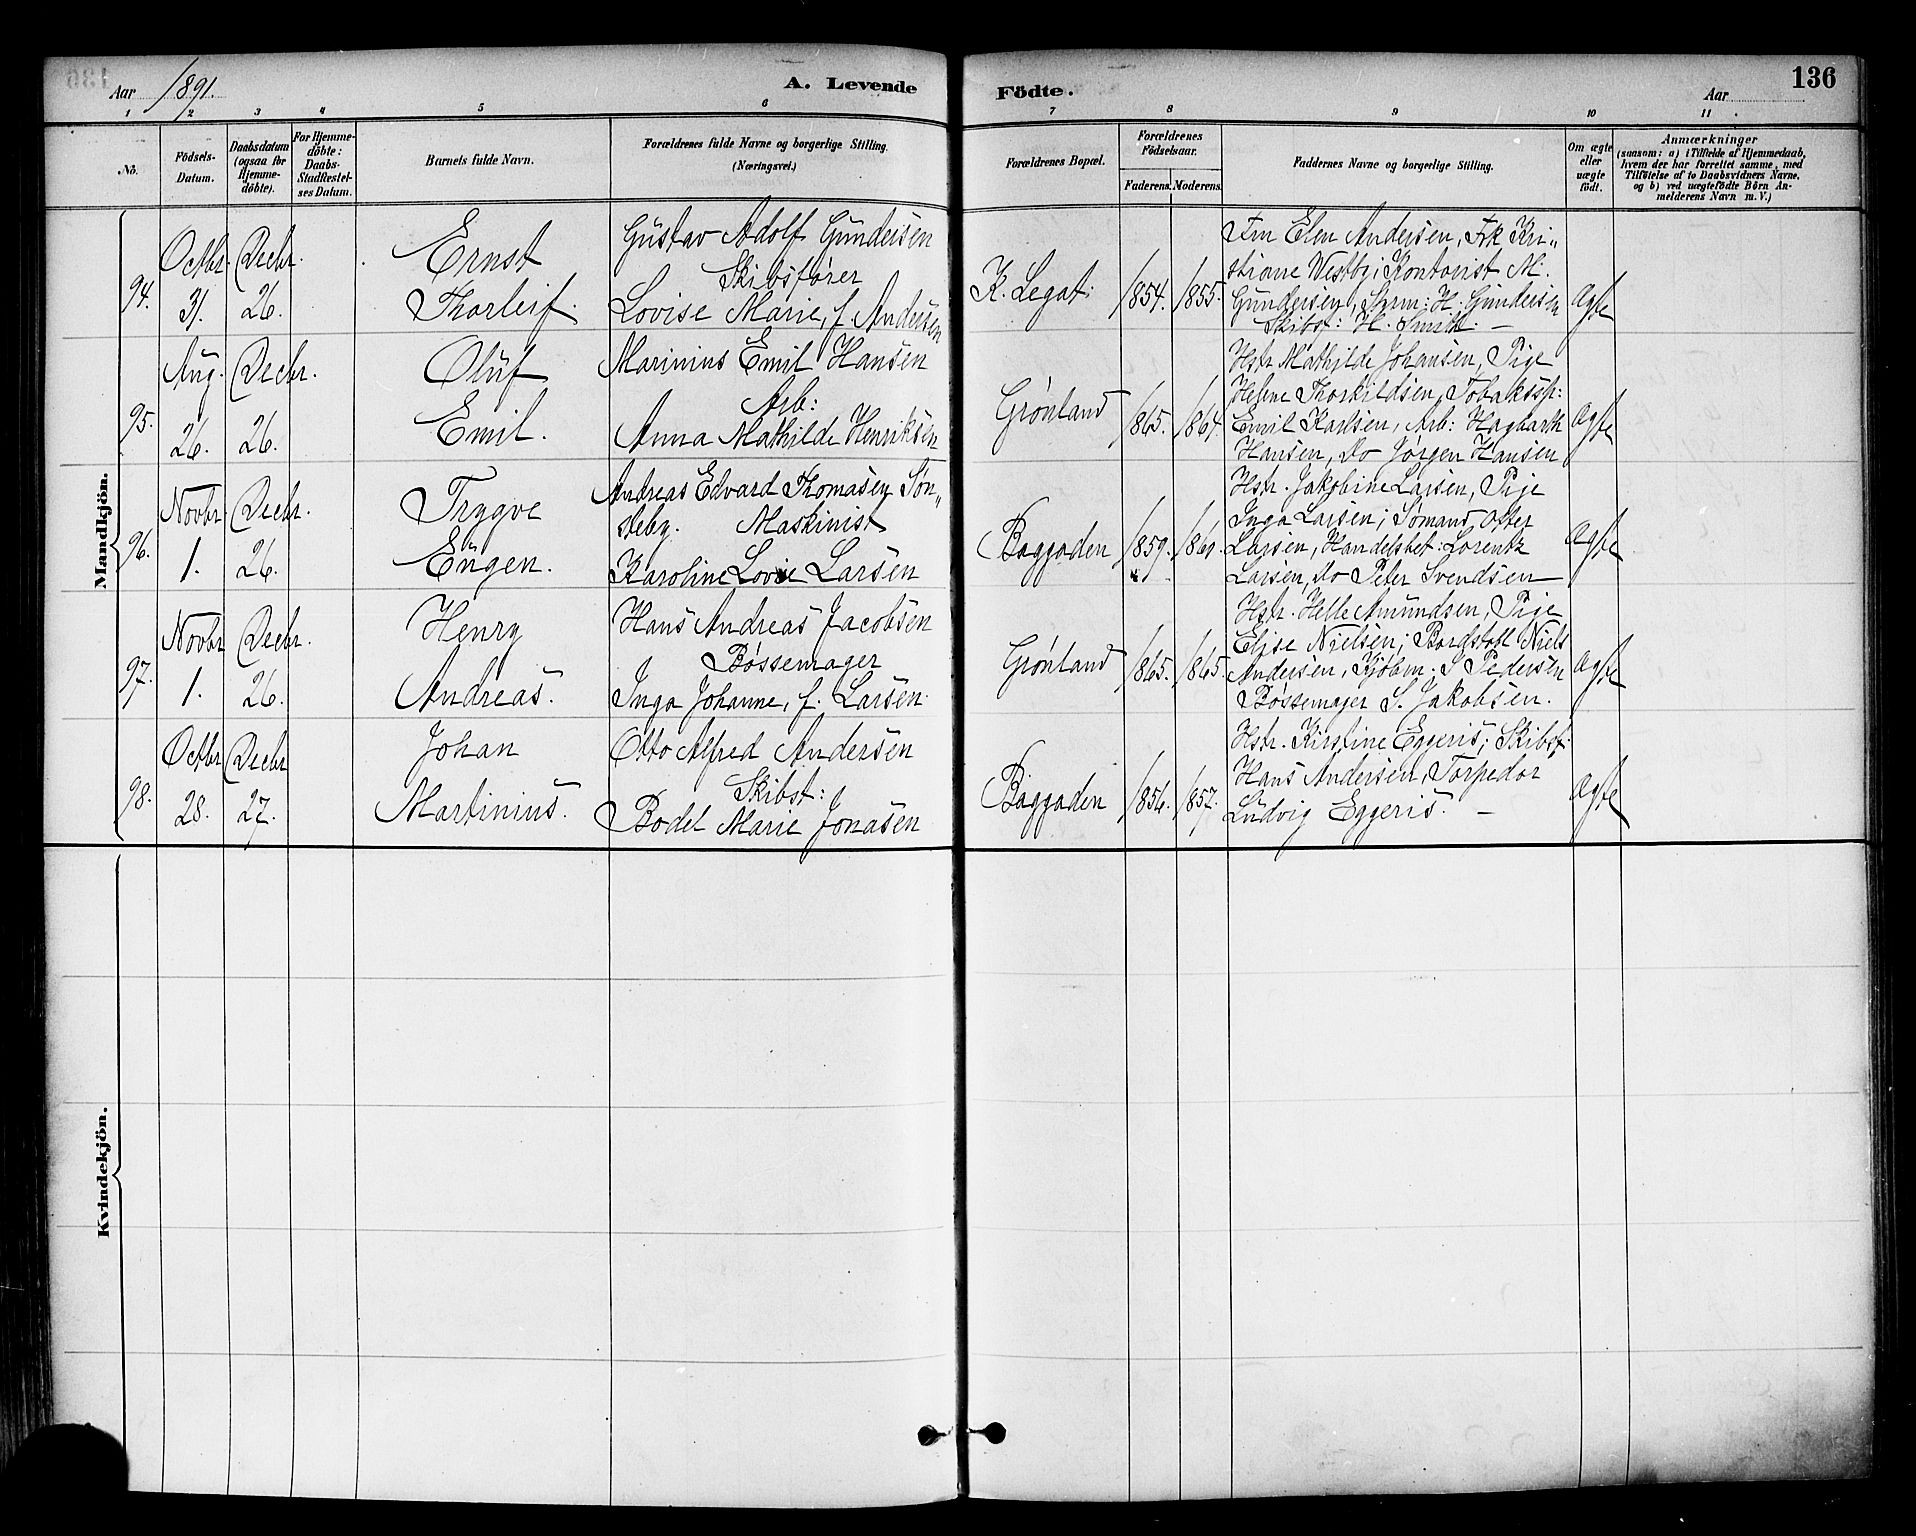 Aar 1891. A. Levende Födte. Aar 136
1 2 3 4 5 6 7 8 9 10 11
No.
Födsels-
Datum.
Daabsdatum
(ogsaa for
Hjemme-
döbte).
For Hjemme-
döbte:
Daabs-
Stadfæstel-
ses Datum.
Barnets fulde Navn.
Forældrenes fulde Navne og borgerlige Stilling.
(Næringsvei.)
Forældrenes Bopæl.
Forældrenes
Födselsaar.
Faderens. Moderens.
Faddernes Navne og borgerlige Stilling.
Om ægte
eller
uægte
födt.
Anmærkninger
(saasom: a) i Tilfælde af Hjemmedaab,
hvem der har forrettet samme, med
Tilföielse af to Daabsvidners Navne,
og b) ved uægtefödte Börn An-
melderens Navn m. V.)
Mandkjön.
94.
Octbr.
31.
Decbr.
26.
Ernst
Thorleif.
Gustav Adolf Gundersen
Skibsfører
Lovise Marie, f. Andersen
K. Legat.
1854. 1855.
Fru Elen Andersen, Frk Kri„
stiane Vestby; Kontorist M.
Gundersen, H. Gundersen
Skibst: H. Smith. —
Ægte
95.
Aug.
26.
Decbr.
26.
Oluf
Emil.
Marinius Emil Hansen
Arb:
Anna Mathilde Henriksen
Grønland
1865. 1864.
Hstr Mathilde Johansen, Pige
Helene Thorkildsen, Tobakssp:
Emil Karlsen, Arb: Hagbarth
Hansen, Do Jørgen Hansen
Ægte
96.
Novbr
1.
Decbr.
26.
Trygve
Eugen.
Andreas Edvard Thomasen Søn„
steby. Maskinist
Karoline Lovise Larsen
Baggaden
1859. 1861.
Hstr. Jakobine Larsen, Pige
Inga Larsen; Sømand
Larsen, Handelsbet: Lorentz
Larsen, Do Peter Svendsen
Ægte
97.
Novbr
1.
Decbr.
26.
Henry
Andreas.
Hans Andreas Jacobsen
Bøssemager
Inga Johanne, f. Larsen.
Grønland
1865. 1865.
Hstr. Helle Amundsen, Pige
Elise Nielsen; Niels
Andersen, Kjøbm. S Pedersen
Bøssemager S. Jakobsen.
Ægte
98.
Octbr
28.
Decbr
27.
Johan
Martinius.
Otto Alfred Andersen
Skibst:
Bodel Marie Jonasen
Baggaden
1856. 1857.
Hstr. Kirstine Eggeris; Skibst:
Hans Andersen, Torpedor
Ludvig Eggeris. —
Ægte
Kvindekjön.